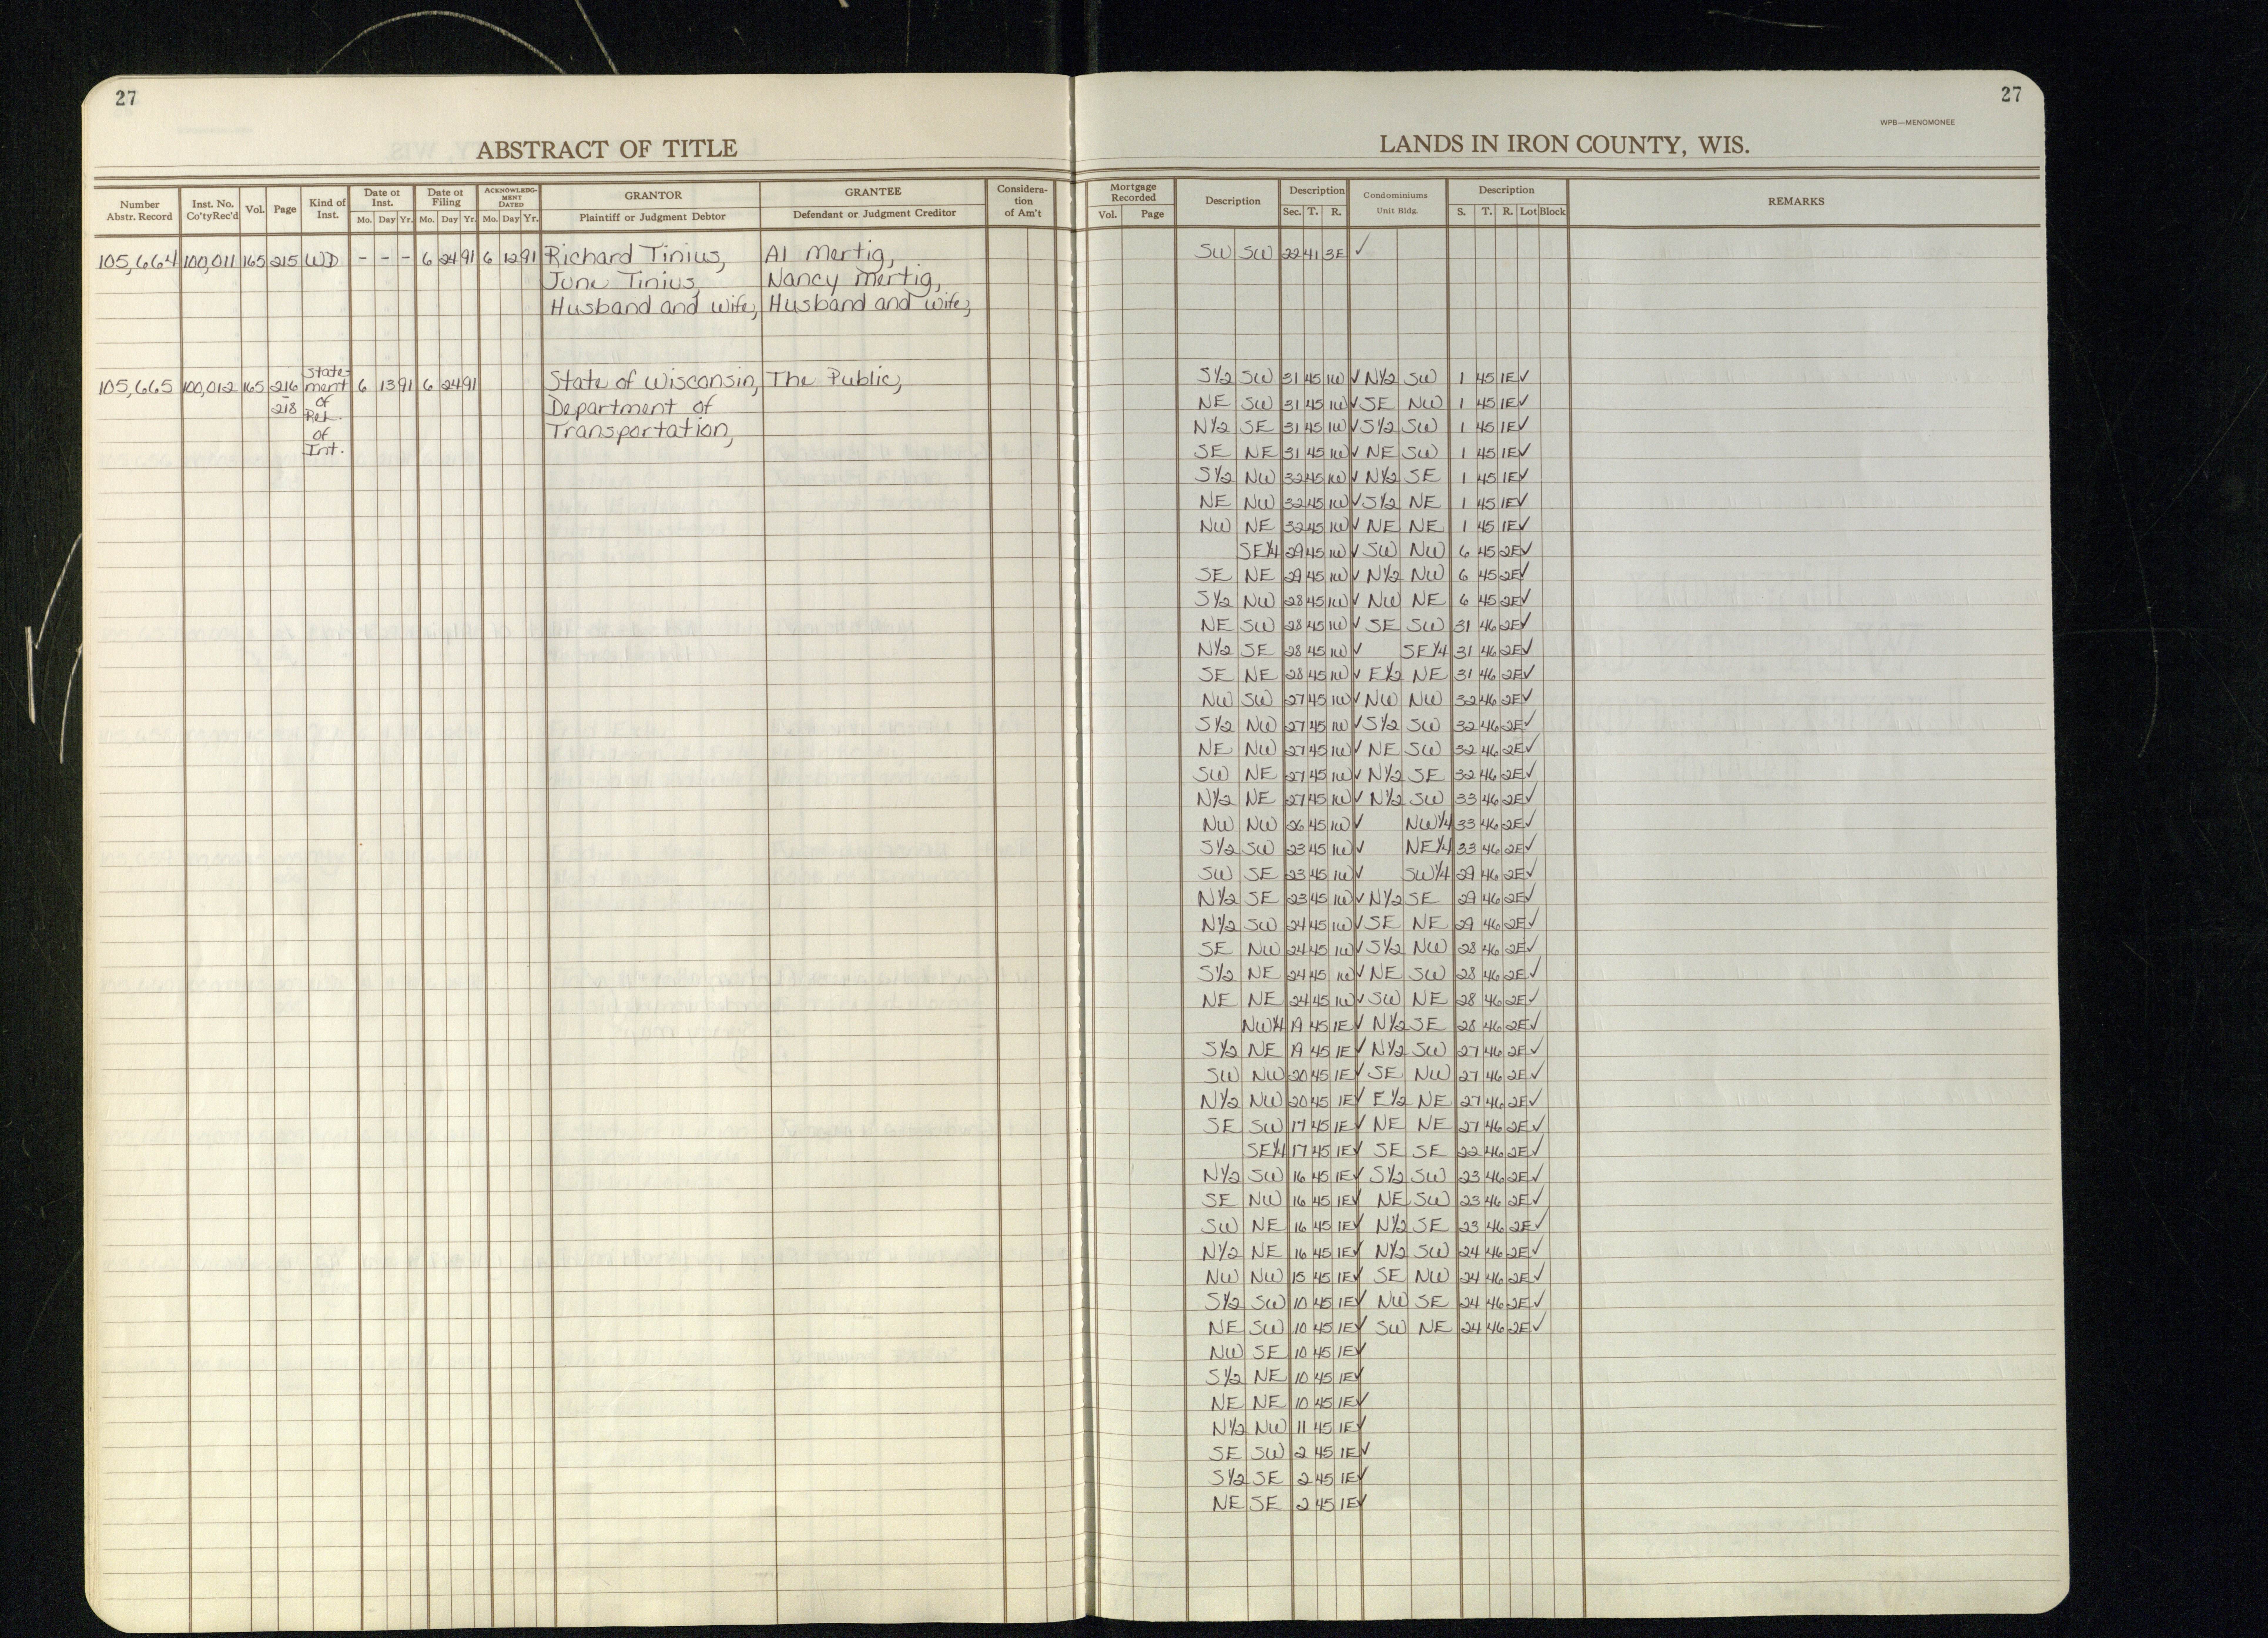 27
27
WPB—MENOMONEE
ABSTRACT OF TITLE
LANDS IN IRON COUNTY, WIS.
Number Abstr. Record | Inst. No. Co'ty Rec'd | Vol. | Page | Kind of Inst. | Date of Inst. Mo. Day Yr. | Date of Filing Mo. Day Yr. | ACKNOWLEDGMENT DATED Mo. Day Yr. | GRANTOR Plaintiff or Judgment Debtor | GRANTEE Defendant or Judgment Creditor | Consideration of Am't
Mortgage Recorded Vol. Page | Description | Description Sec. T. R. | Condominiums Unit Bldg. | Description S. T. R. Lot Block | REMARKS
105,664 100,011 165 215 WD - - - 6 24 91 6 12 91 Richard Tinius, Al Mertig, SW SW 22 41 3E ✓
June Tinius, Nancy Mertig,
Husband and Wife, Husband and Wife,
105,665 100,012 165 216 - 218 Statement of Rel. of Int. 6 13 91 6 24 91 State of Wisconsin, The Public,
Department of
Transportation,
S½ SW 31 45 1W ✓ N½ SW 1 45 1E ✓
NE SW 31 45 1W ✓ SE NW 1 45 1E ✓
N½ SE 31 45 1W ✓ S½ SW 1 45 1E ✓
SE NE 31 45 1W ✓ NE SW 1 45 1E ✓
S½ NW 32 45 1W ✓ N½ SE 1 45 1E ✓
NE NW 32 45 1W ✓ S½ NE 1 45 1E ✓
NW NE 32 45 1W ✓ NE NE 1 45 1E ✓
SE¼ 29 45 1W ✓ SW NW 6 45 2E ✓
SE NE 29 45 1W ✓ N½ NW 6 45 2E ✓
S½ NW 28 45 1W ✓ NW NE 6 45 2E ✓
NE SW 28 45 1W ✓ SE SW 31 46 2E ✓
N½ SE 28 45 1W ✓ SE¼ 31 46 2E ✓
SE NE 28 45 1W ✓ E½ NE 31 46 2E ✓
NW SW 27 45 1W ✓ NW NW 32 46 2E ✓
S½ NW 27 45 1W ✓ S½ SW 32 46 2E ✓
NE NW 27 45 1W ✓ NE SW 32 46 2E ✓
SW NE 27 45 1W ✓ N½ SE 32 46 2E ✓
N½ NE 27 45 1W ✓ N½ SW 33 46 2E ✓
NW NW 26 45 1W ✓ NW¼ 33 46 2E ✓
S½ SW 23 45 1W ✓ NE¼ 33 46 2E ✓
SW SE 23 45 1W ✓ SW¼ 29 46 2E ✓
N½ SE 23 45 1W ✓ N½ SE 29 46 2E ✓
N½ SW 24 45 1W ✓ SE NE 29 46 2E ✓
SE NW 24 45 1W ✓ S½ NW 28 46 2E ✓
S½ NE 24 45 1W ✓ NE SW 28 46 2E ✓
NE NE 24 45 1W ✓ SW NE 28 46 2E ✓
NW¼ 19 45 1E ✓ N½ SE 28 46 2E ✓
S½ NE 19 45 1E ✓ N½ SW 27 46 2E ✓
SW NW 20 45 1E ✓ SE NW 27 46 2E ✓
N½ NW 20 45 1E ✓ E½ NE 27 46 2E ✓
SE SW 17 45 1E ✓ NE NE 27 46 2E ✓
SE¼ 17 45 1E ✓ SE SE 22 46 2E ✓
N½ SW 16 45 1E ✓ S½ SW 23 46 2E ✓
SE NW 16 45 1E ✓ NE SW 23 46 2E ✓
SW NE 16 45 1E ✓ N½ SE 23 46 2E ✓
N½ NE 16 45 1E ✓ N½ SW 24 46 2E ✓
NW NW 15 45 1E ✓ SE NW 24 46 2E ✓
S½ SW 10 45 1E ✓ NW SE 24 46 2E ✓
NE SW 10 45 1E ✓ SW NE 24 46 2E ✓
NW SE 10 45 1E ✓
S½ NE 10 45 1E ✓
NE NE 10 45 1E ✓
N½ NW 11 45 1E ✓
SE SW 2 45 1E ✓
S½ SE 2 45 1E ✓
NE SE 2 45 1E ✓